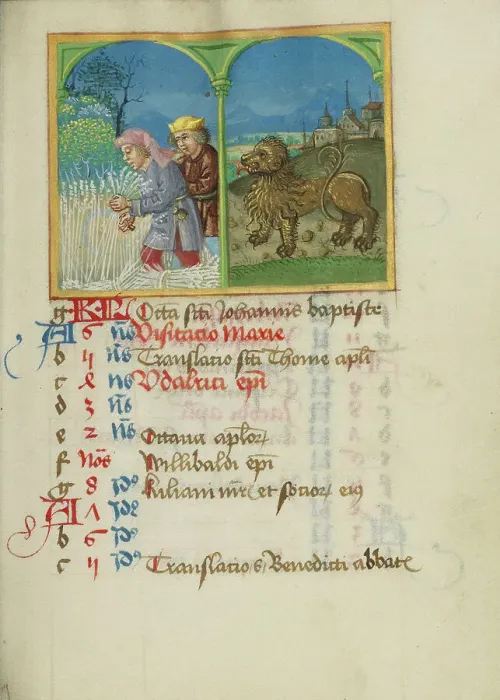 g KL Octa scti Johannis baptiste
A 6 nos Visitacio Marie
b 4 nos Translatio scti Thome apli
c 8 nos Udalrici epi
d 3 nos
e 2 nos Octava aplor
f nos Willibaldi epi
g 8 Idus Kiliani mr et socior eius
A Λ Idus
b 6 Idus
c 4 Translatio s Benedicti abbatis